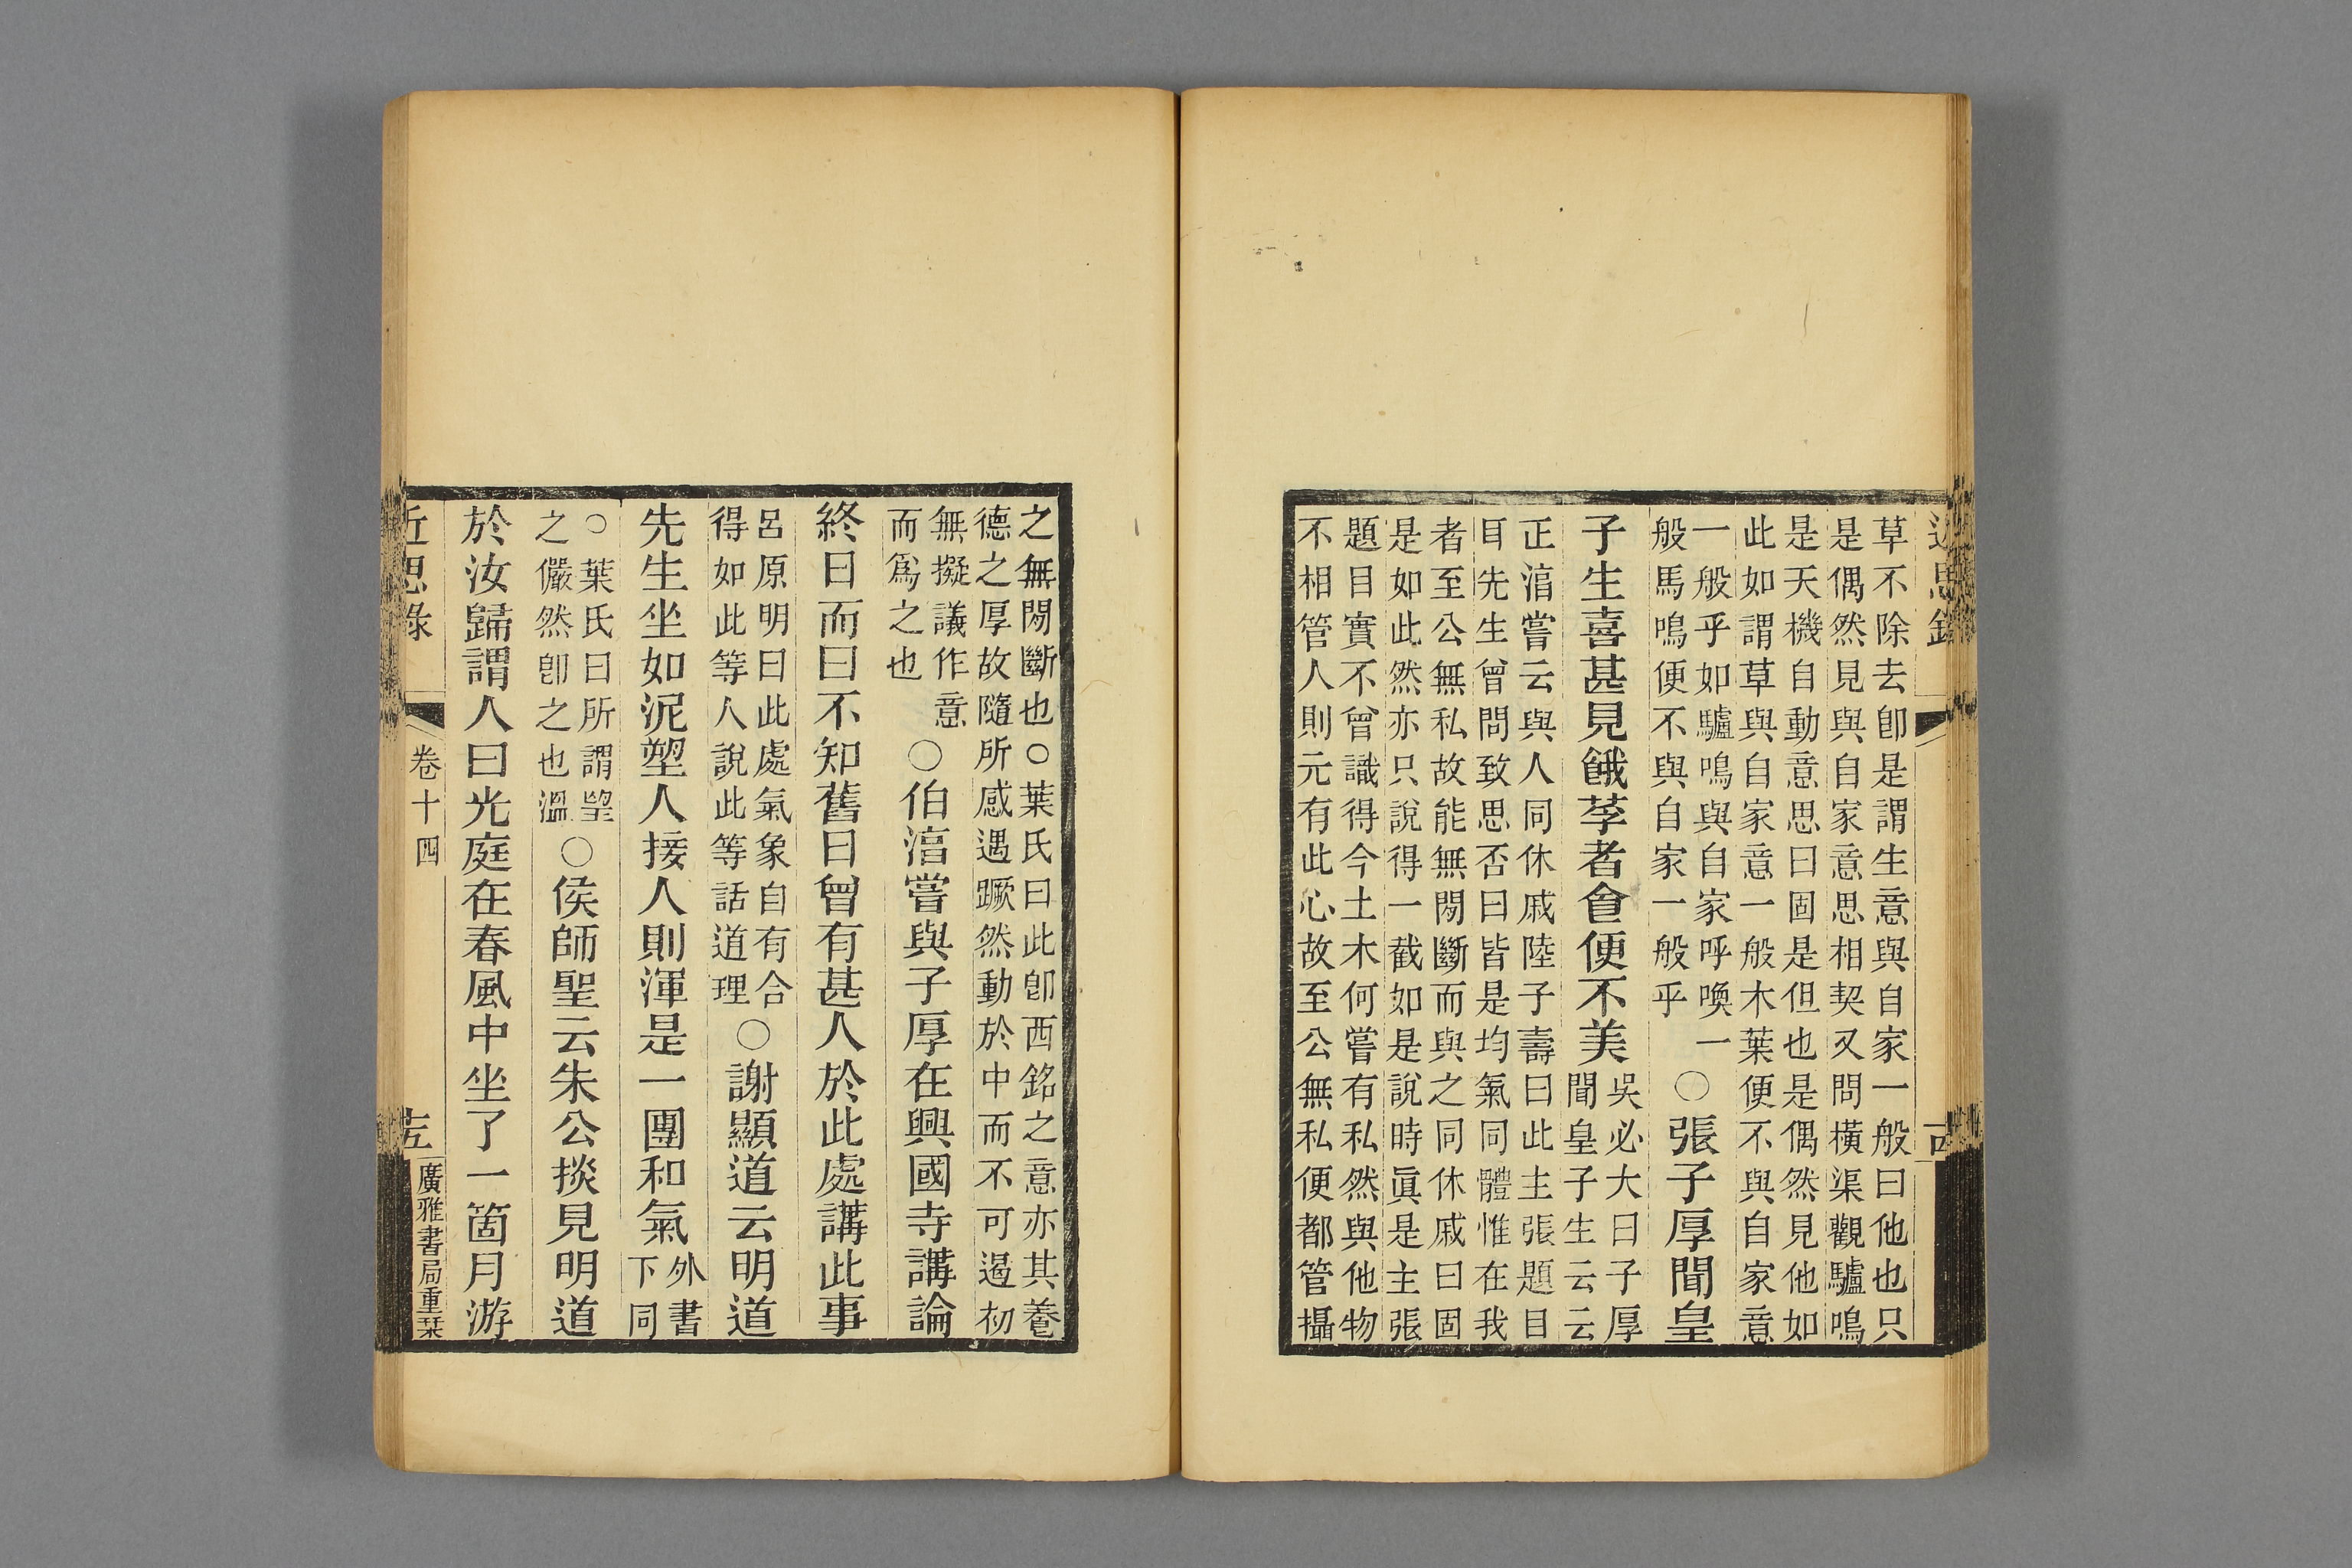 近思錄
草不除去卽是謂生意與自家一般曰他也只
是偶然見與自家意思相契又問橫渠觀驢鳴
是天機自動意思曰固是但也是偶然見他如
此如謂草與自家意一般木葉便不與自家意
一般乎如驢鳴與自家呼喚一
般馬鳴便不與自家一般乎
○張子厚聞皇
子生喜甚見餓莩者食便不美
吳必大曰子厚
聞皇子生云云
正淯嘗云與人同休戚陸子壽曰此主張題目
耳先生曾問致思否曰皆是均氣同體惟在我
者至公無私故能無閒斷而與之同休戚曰固
是如此然亦只說得一截如是說時眞是主張
題目實不曾識得今土木何嘗有私然與他物
不相管人則元有此心故至公無私便都管攝
之無閒斷也○葉氏曰此卽西銘之意亦其養
德之厚故隨所感遇蹶然動於中而不可遏初
無擬議作意
而爲之也
○伯淯嘗與子厚在興國寺講論
終日而曰不知舊日曾有甚人於此處講此事
呂原明曰此處氣象自有合
得如此等人說此等話道理
○謝顯道云明道
先生坐如泥塑人接人則渾是一團和氣
外書
下同
○葉氏曰所謂望
之儼然卽之也溫
○侯師聖云朱公掞見明道
於汝歸謂人曰光庭在春風中坐了一箇月游
近思錄
卷十四
廣雅書局重栞